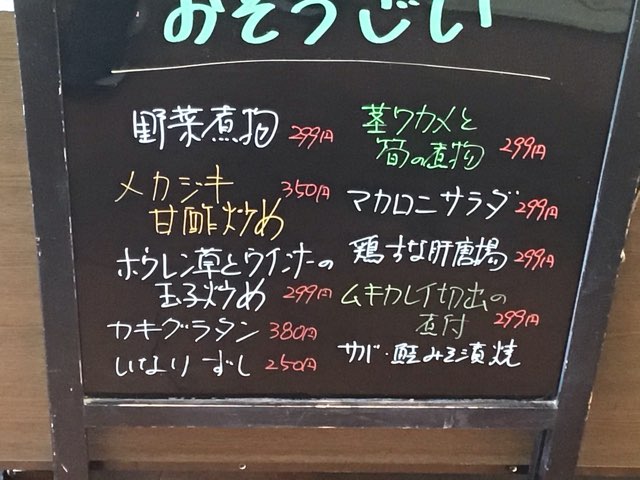 おそうじい
野菜煮物 299円
メカジキ 350円
甘酢炒め
ホウレン草とウインナーの
玉子炒め 299円
カキグラタン 380円
いなりずし 250円
茎ワカメと
筍の煮物 299円
マカロニサラダ 299円
鶏すな肝唐揚 299円
ムキカレイ切出の
煮付 299円
サバ・鮭みそ漬焼